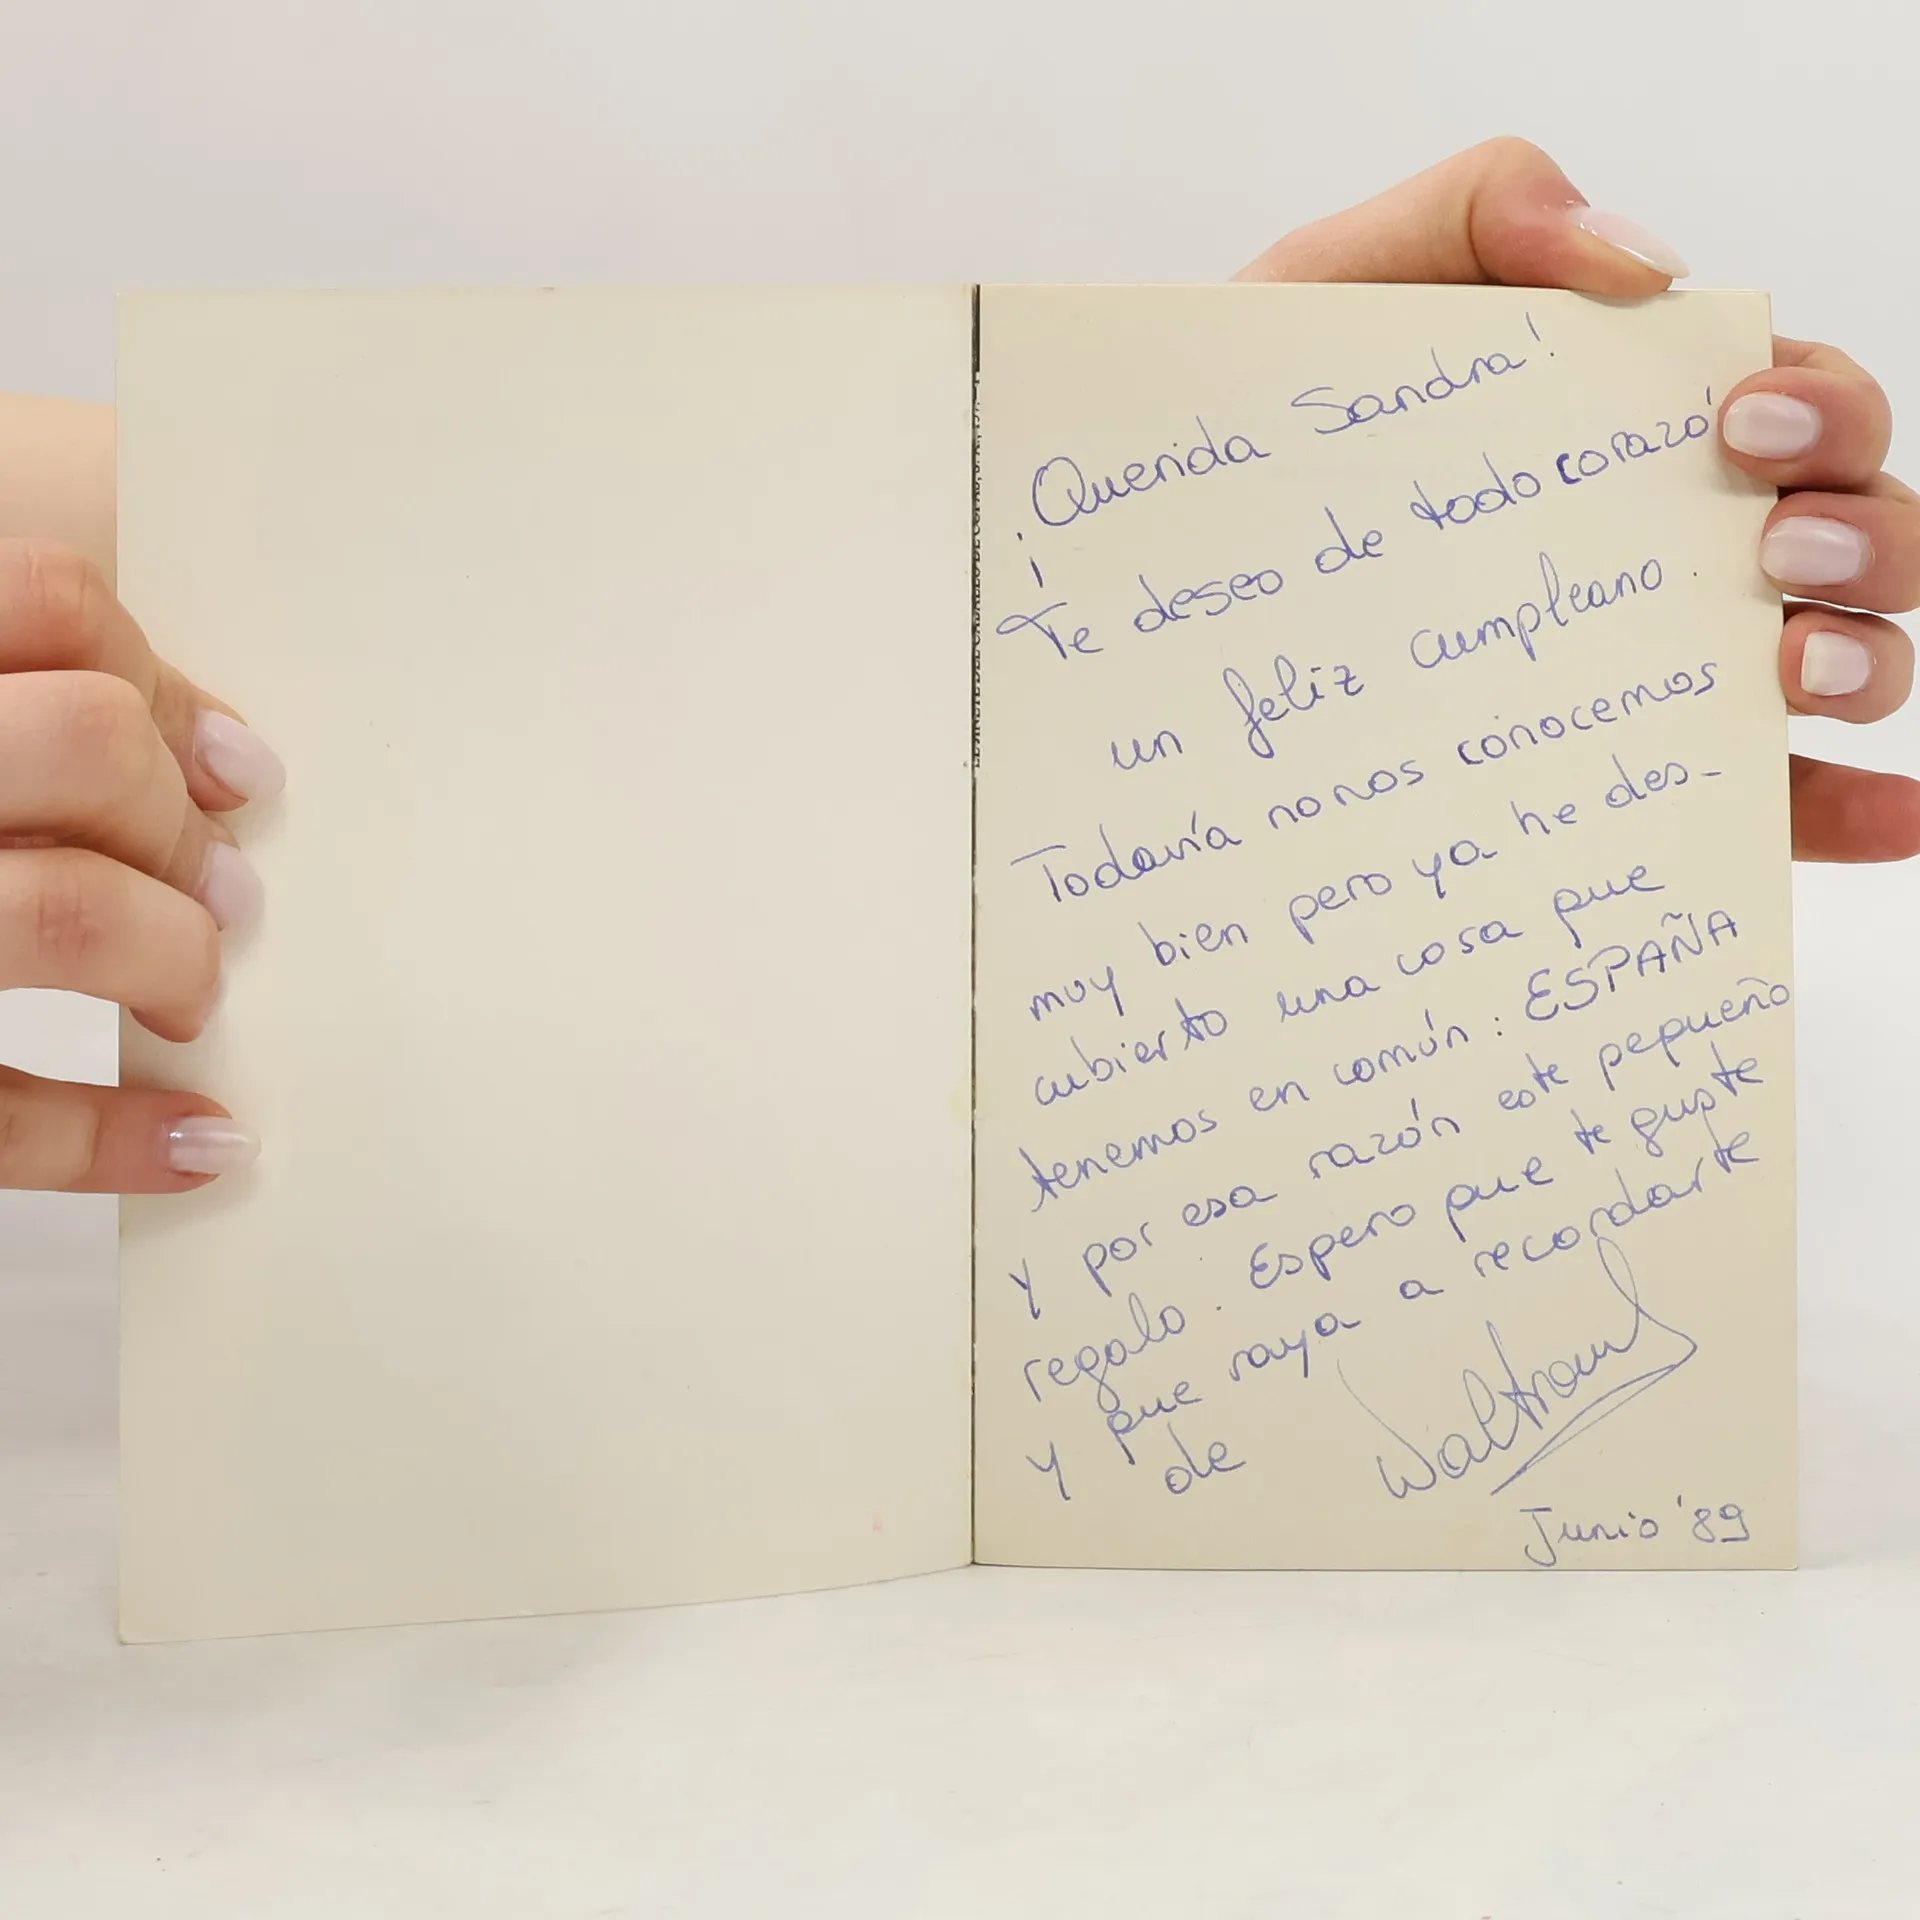 ¡Querida Sandra!
Te deseo de todo corazó
un feliz cumpleano.
Todavía no nos conocemos
muy bien pero ya he des-
cubierto una cosa que
tenemos en común: ESPAÑA
y por esa razón este pequeño
regalo. Espero que te guste
y que vaya a recordarte
de Waltraud
Junio '89